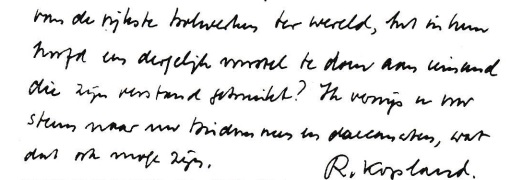 van de rijkste bolwerken ter wereld, het in hun
hoofd een dergelijk voorstel te doen aan iemand
die zijn verstand gebruikt? Ik verwijs u voor
steun naar uw en , wat
dat ook moge zijn. R. Kopland.